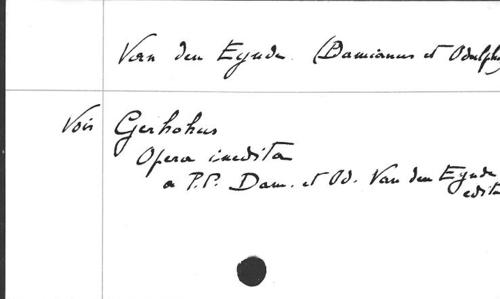 Van den Eynde. (Damianus et Odulph
Vois Gerhohus
Opera inedita
a P.P. Dam. et Od. Van den Eynde
edita